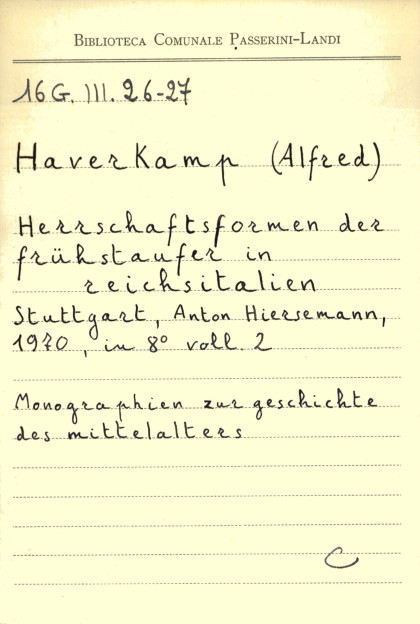 Biblioteca Comunale Passerini-Landi
16 G. III. 26-27
Haverkamp (Alfred)
Herrschaftsformen der
frühstaufer in
reichsitalien
Stuttgart, Anton Hiersemann,
1970, in 8° voll. 2
Monographien zur geschichte
des mittelalters
C